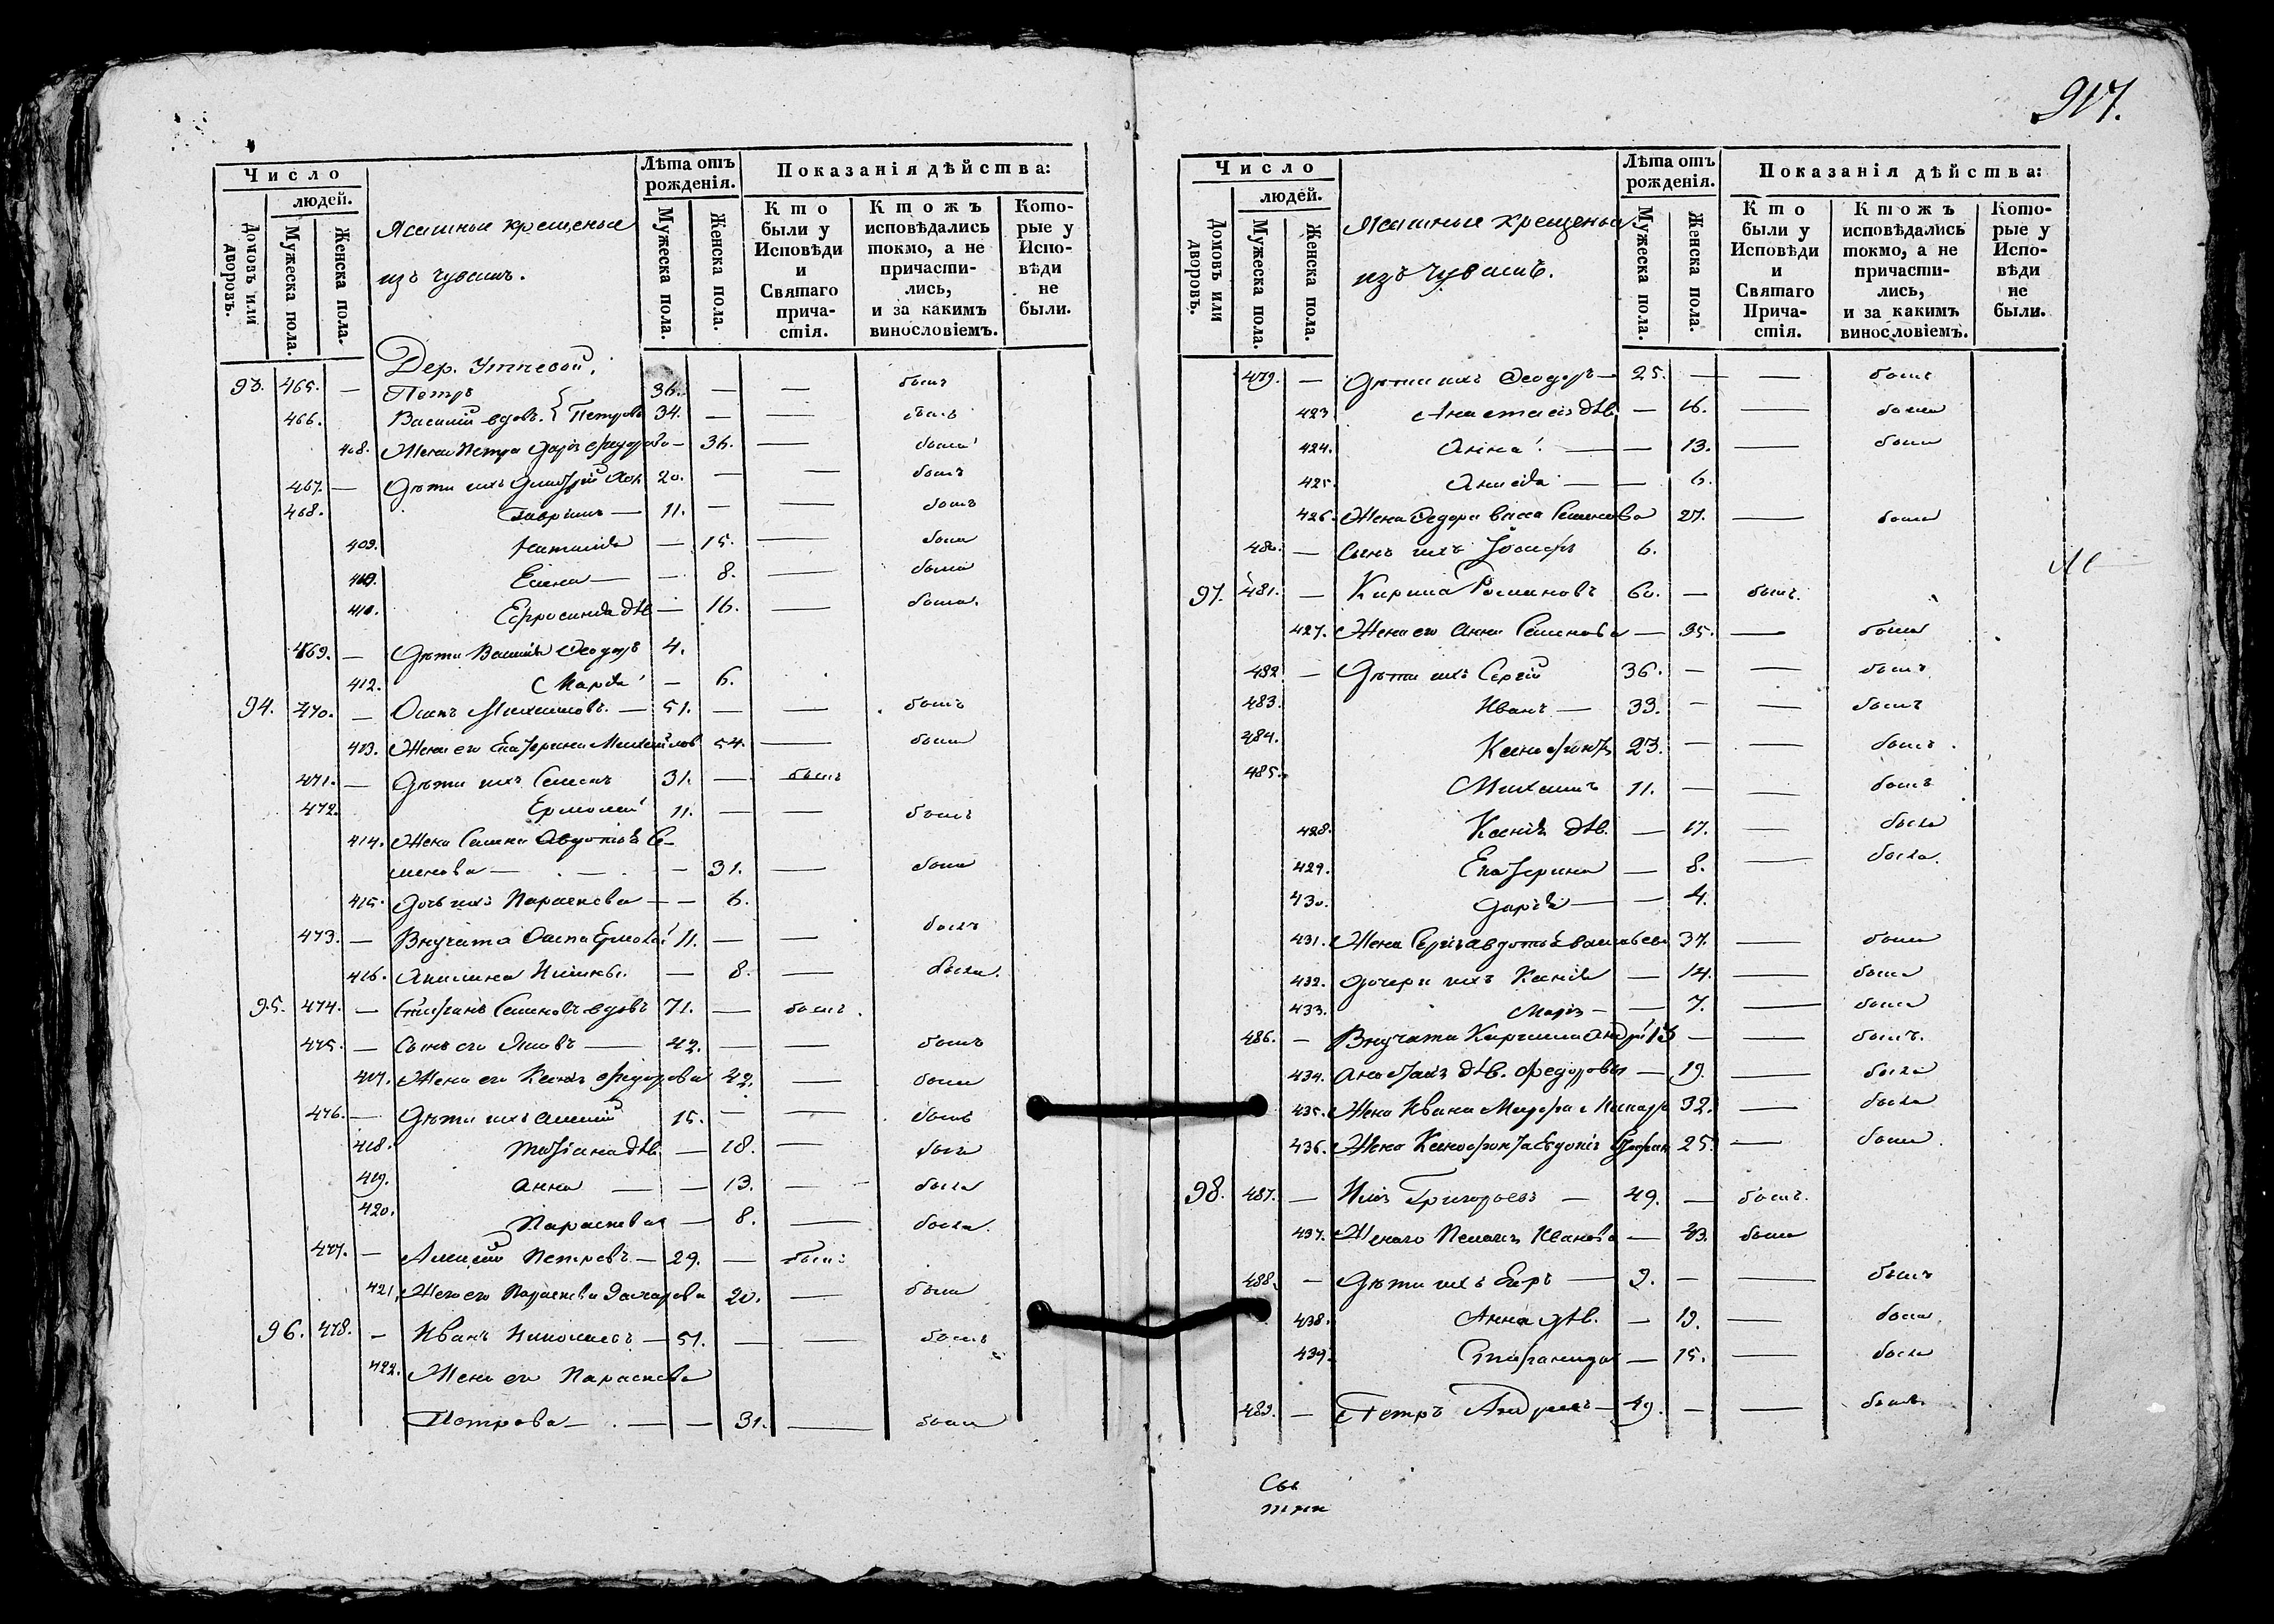 917.
Число
людей.
Домовъ или дворовъ.
Мужеска пола.
Женска пола.
Ясашные крещеные
изъ чувашъ.
Лѣта отъ рожденія.
Мужеска пола.
Женска пола.
Показанія дѣйства:
Кто были у Исповѣди и Святаго причастія.
Ктожъ исповѣдались токмо, а не причастились, и за какимъ винословіемъ.
Которые у Исповѣди не были.
Дер.
93. 465. — Петръ 36. — — былъ
466. Василій вдовъ. Петровы 34. — — былъ
408. Жена Петра Дарія Федорова — 36. — была
467. — Дѣти ихъ Димитрій 20. — — былъ
468. Гавріилъ — 11. — — былъ
409. — 15. — была
Елена — — 8. — была
Ефросинія дѣв. — 16. — была.
469. — Дѣти Василія Ѳеодоръ 4.
412. Марія — 6.
94. 470. — Осипъ Михаиловъ. — 51. — — былъ
413. Жена его Екатерина Михайлов 54. — была
471. — Дѣти ихъ Семенъ 31. — былъ
472. Ермолай 11. — — былъ
414. Жена Семена Авдотья Се-
менова — — — 31. — была
415. Дочь ихъ Параскева — — 6.
473. — Внучата Осипа Ермолай 11. — — былъ
416. Акилина — 8. — была.
95. 474. — Стефанъ Семеновъ вдовъ 71. — былъ.
475. — Сынъ его Яковъ — 42. — — былъ
417. Жена его Ксенія Федорова 42. — была
476. — Дѣти ихъ Алексій 15. — — былъ
418. Татіана дѣв. — 18. — была
419. Анна — — 13. — была
420. Параскева — 8. — была.
477. — Алексій Петровъ — 29. — былъ
421. Жена его Параскева Захарова 20. — была
96. 478. — Иванъ Николаевъ — 51. — — былъ
422. Жена его Параскева
Петрова — — — 31. — была
Число
людей.
Домовъ или дворовъ.
Мужеска пола.
Женска пола.
Ясашные крещеные
изъ чувашъ.
Лѣта отъ рожденія.
Мужеска пола.
Женска пола.
Показанія дѣйства:
Кто были у Исповѣди и Святаго Причастія.
Ктожъ исповѣдались токмо, а не причастились, и за какимъ винословіемъ.
Которые у Исповѣди не были.
479. — Дѣти ихъ Ѳеодоръ — 25. — — былъ
423. Анастасія дѣв. — 16. — была
424. Анна. — — 13. — была
425. — — 6.
426. Жена Федора Васса Семенова 27. — была
480. — Сынъ ихъ Іосифъ 6.
97. 481. — Кирила Романовъ 60. — былъ.
427. Жена его Анна Семенова — 35. — была
482. — Дѣти ихъ Сергій 36. — — былъ
483. Иванъ — 33. — — былъ
484. Ксенофонтъ 23. — — былъ.
485. Михаилъ 11. — — былъ
428. Ксенія дѣв. — 17. — была
429. Екатерина — 8. — была.
430. Дарья — — 4.
431. Жена Сергія Авдотья Васильева 37. — была
432. Дочери ихъ Ксенія — 14. — была
433. Марія — — 7. — была
486. — Внучата Кирилла Андрей 13 — — былъ.
434. Анастасія дѣв. Федорова — 19. — была
435. Жена Ивана Макар 32. — была
436. Жена Ксенофонта Евдокія Стефан 25. — была.
98. 487. — Илія Григорьевъ — 49. — былъ.
437. Жена его Пелагія Иванова — 43. была
488. — Дѣти ихъ Егоръ — 9. — — былъ
438. Анна дѣв. — 19. — была.
439. Степанида — 15. — была
489. — Петръ Андреевъ — 49. — — былъ.